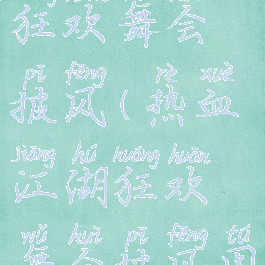 狂欢舞会
pī fēng rè xuè
披风(热血
jiāng hú kuáng huān
江湖狂欢
wǔ huì pī fēng tú
舞会披风图